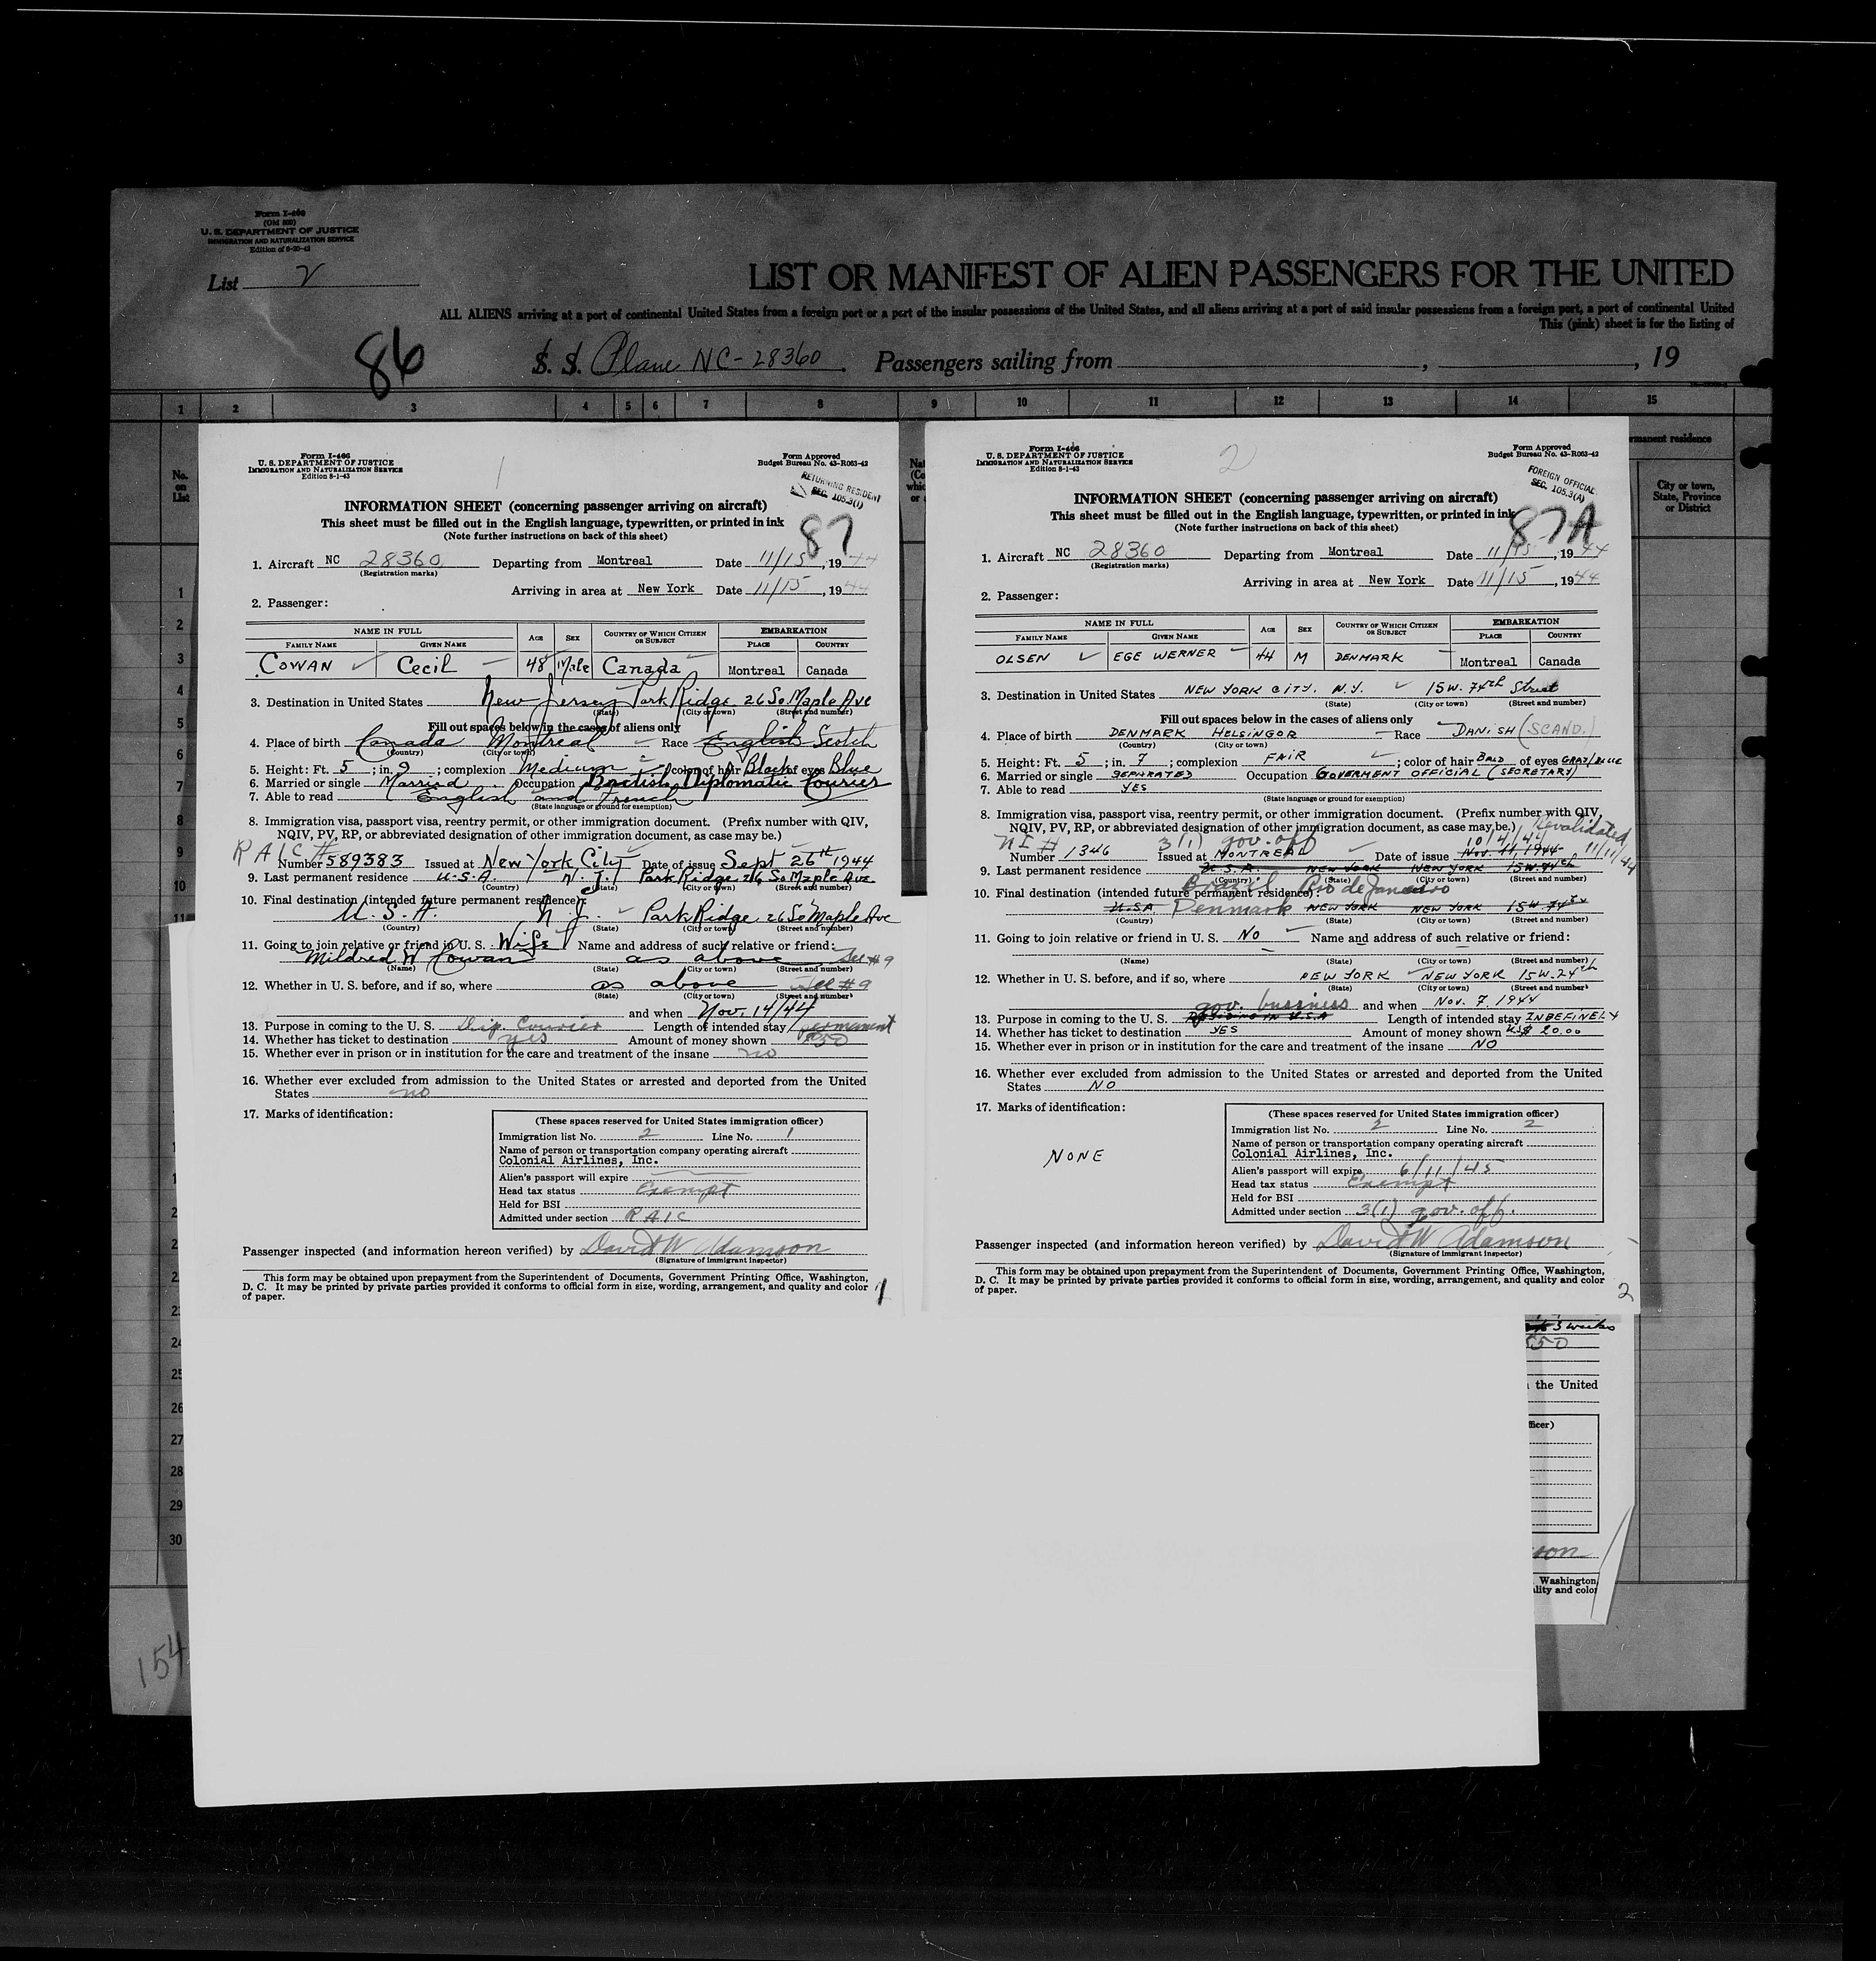 Form I-466
(Old 500)
U. S. DEPARTMENT OF JUSTICE
IMMIGRATION AND NATURALIZATION SERVICE
List 2
LIST OR MANIFEST OF ALIEN PASSENGERS FOR THE UNITED
ALL ALIENS arriving at a port of continental United States from a foreign port or a port of the insular possessions of the United States, and all aliens arriving at a port of said insular possessions from a foreign port, a port of continental United
This (pink) sheet is for the listing of
86
S. S. Plane NC-28360. Passengers sailing from , , 19
1 2 3 4 5 6 7 8 9 10 11 12 13 14 15
No. on List
rmanent residence
City or town, State, Province or District
1
Form I-466
U. S. DEPARTMENT OF JUSTICE
IMMIGRATION AND NATURALIZATION SERVICE
Edition 8-1-43
Form Approved
Budget Bureau No. 43-R063-42
RETURNING RESIDENT
SEC. 105.3(1)
INFORMATION SHEET (concerning passenger arriving on aircraft)
This sheet must be filled out in the English language, typewritten, or printed in ink
(Note further instructions on back of this sheet)
87
1. Aircraft NC 28360 Departing from Montreal Date 11/15, 1944
(Registration marks)
Arriving in area at New York Date 11/15, 1944
2. Passenger:
NAME IN FULL AGE SEX COUNTRY OF WHICH CITIZEN OR SUBJECT EMBARKATION
FAMILY NAME GIVEN NAME PLACE COUNTRY
COWAN Cecil 48 Male Canada Montreal Canada
3. Destination in United States New Jersey Park Ridge 26 So. Maple Ave
(State) (City or town) (Street and number)
Fill out spaces below in the cases of aliens only
4. Place of birth Canada Montreal Race English Scotch
(Country) (City or town)
5. Height: Ft. 5; in. 9; complexion Medium; color of hair Black of eyes Blue
6. Married or single Married Occupation British Diplomatic Courier
7. Able to read English and French
(State language or ground for exemption)
8. Immigration visa, passport visa, reentry permit, or other immigration document. (Prefix number with QIV,
NQIV, PV, RP, or abbreviated designation of other immigration document, as case may be.)
RAIC #
Number 589383 Issued at New York City Date of issue Sept 26th 1944
9. Last permanent residence U.S.A. N.J. Park Ridge 26 So. Maple Ave
(Country) (State) (City or town) (Street and number)
10. Final destination (intended future permanent residence):
U. S. A. N. J. Park Ridge 26 So Maple Ave
(Country) (State) (City or town) (Street and number)
11. Going to join relative or friend in U. S. Wife Name and address of such relative or friend:
Mildred W Cowan as above See #9
(Name) (State) (City or town) (Street and number)
12. Whether in U. S. before, and if so, where as above See #9
(State) (City or town) (Street and number)
and when Nov. 14/44
13. Purpose in coming to the U. S. Dip. Courier Length of intended stay permanent
14. Whether has ticket to destination yes Amount of money shown 50
15. Whether ever in prison or in institution for the care and treatment of the insane no
16. Whether ever excluded from admission to the United States or arrested and deported from the United
States no
17. Marks of identification:
(These spaces reserved for United States immigration officer)
Immigration list No. 2 Line No. 1
Name of person or transportation company operating aircraft
Colonial Airlines, Inc.
Alien's passport will expire
Head tax status Exempt
Held for BSI
Admitted under section RAIC
Passenger inspected (and information hereon verified) by David W Adamson
(Signature of immigrant inspector)
This form may be obtained upon prepayment from the Superintendent of Documents, Government Printing Office, Washington,
D. C. It may be printed by private parties provided it conforms to official form in size, wording, arrangement, and quality and color
of paper.
1
2
Form I-466
U. S. DEPARTMENT OF JUSTICE
IMMIGRATION AND NATURALIZATION SERVICE
Edition 8-1-43
Form Approved
Budget Bureau No. 43-R063-42
FOREIGN OFFICIAL
SEC. 105.3(A)
INFORMATION SHEET (concerning passenger arriving on aircraft)
This sheet must be filled out in the English language, typewritten, or printed in ink
(Note further instructions on back of this sheet)
87A
1. Aircraft NC 28360 Departing from Montreal Date 11/15, 1944
(Registration marks)
Arriving in area at New York Date 11/15, 1944
2. Passenger:
NAME IN FULL AGE SEX COUNTRY OF WHICH CITIZEN OR SUBJECT EMBARKATION
FAMILY NAME GIVEN NAME PLACE COUNTRY
OLSEN EGE WERNER 44 M DENMARK Montreal Canada
3. Destination in United States NEW YORK CITY. N.Y. 15 W. 74th Street
(State) (City or town) (Street and number)
Fill out spaces below in the cases of aliens only
4. Place of birth DENMARK HELSINGOR Race DANISH (SCAND.)
(Country) (City or town)
5. Height: Ft. 5; in. 7; complexion FAIR; color of hair BALD of eyes GRAY/BLUE
6. Married or single SEPARATED Occupation GOVERMENT OFFICIAL (SECRETARY)
7. Able to read YES
(State language or ground for exemption)
8. Immigration visa, passport visa, reentry permit, or other immigration document. (Prefix number with QIV,
NQIV, PV, RP, or abbreviated designation of other immigration document, as case may be.) Revalidated
NI # 3(1) gov. off 10/4/44 11/11/44
Number 1346 Issued at MONTREAL Date of issue Nov. 11 1944
9. Last permanent residence U.S.A. NEW YORK NEW YORK 15 W. 74th
(Country) (State) (City or town) (Street and number)
Brazil Rio de Janeiro
10. Final destination (intended future permanent residence):
U.S.A Denmark NEW YORK NEW YORK 15 W 74th
(Country) (State) (City or town) (Street and number)
11. Going to join relative or friend in U. S. NO Name and address of such relative or friend:
(Name) (State) (City or town) (Street and number)
12. Whether in U. S. before, and if so, where NEW YORK NEW YORK 15 W. 24th
(State) (City or town) (Street and number)
gov. bussiness and when Nov. 7. 1944
13. Purpose in coming to the U. S. RESIDING IN U.S.A Length of intended stay INDEFINELY
14. Whether has ticket to destination YES Amount of money shown US$ 20.00
15. Whether ever in prison or in institution for the care and treatment of the insane NO
16. Whether ever excluded from admission to the United States or arrested and deported from the United
States NO
17. Marks of identification:
NONE
(These spaces reserved for United States immigration officer)
Immigration list No. 2 Line No. 2
Name of person or transportation company operating aircraft
Colonial Airlines, Inc.
Alien's passport will expire 6/11/45
Head tax status Exempt
Held for BSI
Admitted under section 3(1) gov. off.
Passenger inspected (and information hereon verified) by David W Adamson
(Signature of immigrant inspector)
This form may be obtained upon prepayment from the Superintendent of Documents, Government Printing Office, Washington,
D. C. It may be printed by private parties provided it conforms to official form in size, wording, arrangement, and quality and color
of paper.
2
3 weeks
50
the United
ficer)
son
Washington,
lity and color
1
2
3
4
5
6
7
8
9
10
11
24
25
26
27
28
29
30
154